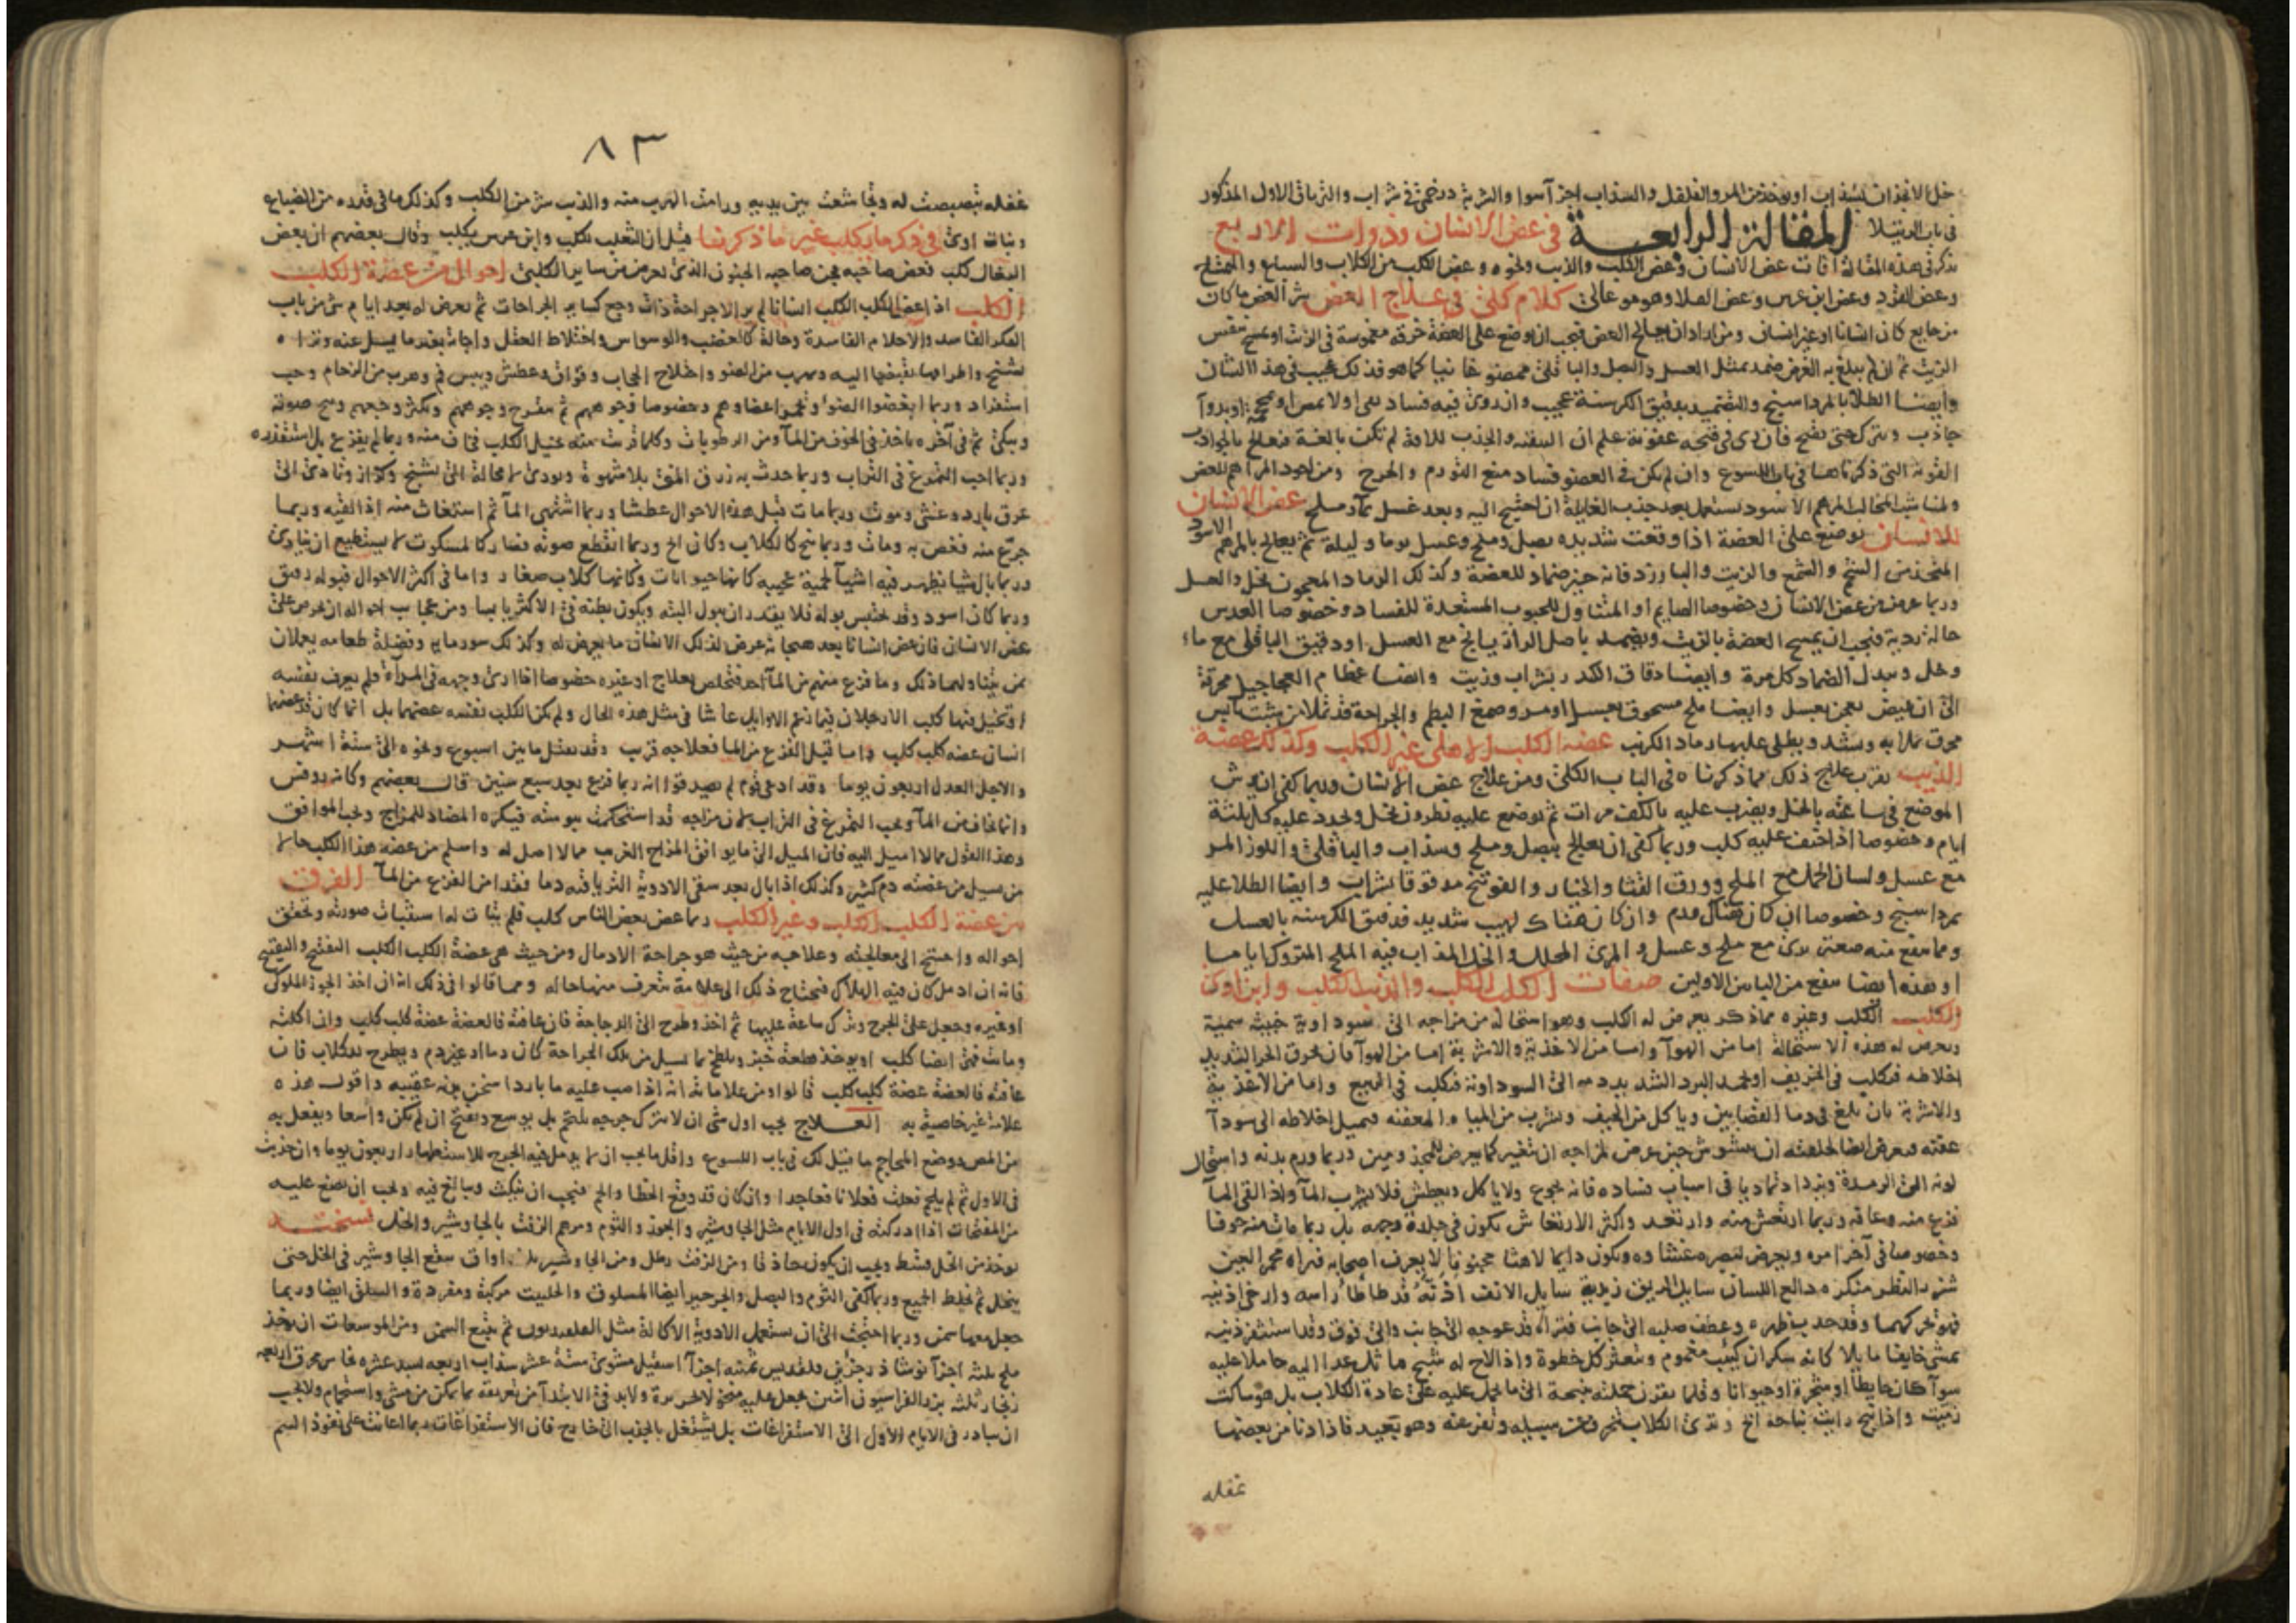 والفلفل والسذاب اجزآ سوا والشربة درخمي في شراب والترياق الاول المذكور
في باب الرتيلا المقالة الرابعة في عض الانسان وذوات الاربع
نذكر في هذه المقالة آفات عض الانسان وعض الكلب والذيب ونحوه وعض الكلب من الكلاب والسباع
وعض القرد وعض ابن عرس وعض كلام كلي في علاج العض شر العض ما كان
من جايع كان انسانا او غير انسان ومن اراد ان يعالج العض فيجب ان يوضع على العضة خرقة مغموسة في الزيت او يمسح بنفس
الزيت ثم ان لم يبلغ به الغرض ضمد بمثل العسل والبصل والباقلى ممضوغا نيا كما هو فذلك عجيب في هذا الشان
وايضا الطلآ بالمرداسنج والتضميد بدقيق الكرسنة عجيب وان روى فيه فساد اولا بمص او
جاذب ويترك حتى يقيح فان رى في قيحه عفونة علم ان التنقيه والجذب للافة لم تكن بالغة فيعالج بالجواذب
القوية التي ذكرناها في باب اللسوع وان لم يكن في العضو فساد منع التورم والجرح ومن اجود المراهم للعض
المرهم الاسود يستعمل بعد جذب الغايلة ان احتيج اليه وبعد غسل بمآء وملح عض الانسان
للانسان يوضع على العضة اذا وقعت شديده بصل وملح وعسل يوما وليلة ثم يعالج بالمرهم الاسود
المتخذ من الشحم والشمع والزيت والبارزد فانه خير ضماد للعضة وكذلك الرماد المعجون بخل والعسل
وربما عرض من عض الانسان وخصوصا الصايم او المتناول للحبوب المستعدة للفساد وخصوصا العدس
حالة رديه فيجب ان يمسح العضة بالزيت ويضمد باصل الرازيانج مع العسل او دقيق الباقلى مع ماء
وخل ويبدل الضماد كل مرة وايضا دقاق الكندر بشراب وزيت وايضا عظام العجاجيل محرقة
الى ان تبيض يعجن بعسل وايضا ملح مسحوق بعسل او مر وصمغ البطم والجراحة قد تملا من شبت يابس
محرق تملا به ويشد ويطلى عليها رماد الكرنب عضة الكلب الاهلي غير الكلب وكذلك عضة
الذيب يقرب علاج ذلك مما ذكرناه في الباب الكلي ومن علاج عض الانسان وربما كفى ان يرش
الموضع في ساعته بالخل ويضرب عليه بالكف مرات ثم يوضع عليه نطرون بخل ويجدد عليه كل ثلثة
ايام وخصوصا اذا خيف عليه كلب وربما كفى ان يعالج ببصل وملح وسذاب والباقلى واللوز المر
مع عسل ولسان الحمل مع الملح وورق القثا والخيار والفوتنج مدقوقا بشراب وايضا الطلا عليه
بمرداسنج وخصوصا ان كان هناك ورم وان كان هناك لهيب شديد فدقيق الكرسنه بالعسل
ومما ينفع منه مع ملح وعسل و المرى المحلل والخل المذاب فيه الملح المتروك اياما
او هذه ايضا ينفع من الاولين صفات الكلب الكلب والذيب الكلب وابن اوى
الكلب الكلب وغيره مما ذكر يعرض له الكلب وهو استحالة من مزاجه الى سوداوية خبيثه سمية
ويعرض له هذه الاستحالة اما من الهوآ واما من الاغذية والاشربة اما من الهوآ فان يحرق الحر الشديد
اخلاطه فيكلب في الخريف او يجمد البرد الشديد دمه الى السوداوية فيكلب في الربيع واما من الاغذية
والاشربة بان يلغ في دما القصابين وياكل من الجيف ويشرب من المياه المعفنه فيميل اخلاطه الى سودآ
عفنه فيعرض ايضا لخلقته ان يتشوش حين عرض لمزاجه ان يتغير كما يعرض للمجذومين وربما ورم بدنه واستحال
لونه الى الرمدة ويزداد تماديا في اسباب فساده فانه يجوع ولا ياكل ويعطش فلا يشرب المآ واذا لقي المآ
فزع منه وعافه وربما ارتعش منه وارتعد واكثر الارتعاش يكون في جلدة وجهه بل ربما مات منه خوفا
وخصوصا في آخر امره ويعرض لبصره غشاوه ويكون دايما لاهثا مجنونا لا يعرف اصحابه فتراه محمر العين
شزر النظر منكره دالع اللسان سايل الريق زبديه سايل الانف اذنه قد طاطا راسه وارخى اذنيه
فهو يحركهما وقد حدب ظهره وعطف صلبه الى جانب فتراه قد عوجه الى جانب والى فوق وقد استثفر ذنبه
يمشي خايفا مايلا كانه سكران كئيب مغموم ويتعثر كل خطوة واذا لاح له شبح ماثل عدا اليه حاملا عليه
سوآ كان حايطا او شجرة او حيوانا وقلما يقرن حملته بنبحة الى ما يحمل عليه على عادة الكلاب بل هو ساكت
زميت واذا نبح رايت نباحه ابح وترى الكلاب تنحرف عن سبيله وتفر عنه وهو بعيد فاذا دنا من بعضها
غفله
٨٣
غفله تبصبصت له وتخاشعت بين يديه ورامت الهرب منه والذيب شر من الكلب وكذلك ما في قدره من الضباع
وبنات اوى في ذكر ما يكلب غير ما ذكرنا قيل ان الثعلب يكلب وابن عرس يكلب وقال بعضهم ان بعض
البغال كلب فعض صاحبه فجن صاحبه الجنون الذي يعرض من ساير الكلبى احوال من عضة الكلب
الكلب اذا عض الكلب الكلب انسانا لم ير الا جراحة ذات وجع كساير الجراحات ثم يعرض له بعد ايام شي من باب
الفكر الفاسد والاحلام الفاسدة وحالة كالغضب والوسواس واختلاط العقل واجابة بغير ما يسل عنه وتراه
يشنج واطرافه يقبضها اليه ويهرب من الضو واختلاج الحجاب وفواق وعطش ويبس فم وهرب من الزحام وحب
استفراد وربما ابغضوا الضوا وتحمر اعضاوهم وخصوصا وجوههم ثم يتقرح وجوههم ويكثر وجعهم ويبح صوته
ويبكي ثم في آخره ياخذ في الخوف من المآ ومن الرطوبات وكلما قربت منه تخيل الكلب فخاف منه وربما لم يفزع بل استقذره
وربما احب التمرغ في التراب وربما حدث به زرق المني بلا شهوة ويودى لا محالة الى تشنج وكزاز وتادى الى
عرق بارد وغشي وموت وربما مات قبل هذه الاحوال عطشا وربما اشتهى المآ ثم استغاث منه اذا لقيه وربما
جرع منه فغص به ومات وربما نبح كالكلاب وكان ابح وربما انقطع صوته فصار كالمسكوت لا يستطيع ان ينادى
وربما بال شيا يظهر فيه اشيآ لحمية عجيبه كانها حيوانات وكانها كلاب صغار واما في اكثر الاحوال فبوله رقيق
وربما كان اسود وقد يحتبس بوله فلا يقدر ان يبول البته ويكون بطنه في الاكثر يابسا ومن عجايب احواله ان يحرص على
عض الانسان فان عض انسانا بعد هيجانه عرض لذلك الانسان ما يعرض له وكذلك سور مايه وفضلة طعامه يعملان
بمن يتناولهما ذلك وما فزع منهم من المآ احد فتخلص بعلاج او غيره خصوصا اذا راى وجهه في المرآة فلم يعرف نفسه
او تخيل فيها كلب الا رجلان فيما زعم الاوايل عاشا في مثل هذه الحال ولم يكن الكلب نفسه عضهما بل انما كان قد عضهما
انسان عضه كلب كلب واما قبل الفزع من الما فعلاجه قريب وقد يمهل ما بين اسبوع ونحوه الى ستة اشهر
والاجل العدل اربعون يوما وقد ادعى قوم لم يصدقوا انه ربما فزع بعد سبع سنين قال بعضهم وكانه روفس
وانما يخاف من المآ ويحب التمرغ في التراب لان مزاجه قد استحكمت يبوسته فيكره المضاد للمزاج ويحب الموافق
وهذا القول مما لا اميل اليه فان الميل الى ما يوافق المزاج الغريب مما لا اصل له واسلم من عضه هذا الكلب حالا
من يسيل من عضته دم كثير وكذلك اذا بال بعد سقى الادوية الترياقيه دما فقد امن الفزع من المآ الفرق
بين عضة الكلب الكلب وغير الكلب ربما عض بعض الناس كلب فلم يتات له استثبات صورته وتحقق
احواله واحتيج الى معالجته وعلاجه من حيث هو جراحة الادمال ومن حيث هي عضة الكلب الكلب التفتيح والتقييح
فانه ان ادمل كان فيه الهلاك فيحتاج ذلك الى علامة يتعرف منها حاله ومما قالوا في ذلك انه ان اخذ الجوز الملوكي
او غيره وجعل على الجرح وترك ساعة عليها ثم اخذ وطرح الى الدجاجة فان عافته فالعضة عضة كلب كلب وان اكلته
وماتت فهي ايضا كلب او يوخذ قطعة خبز ويلطخ بما يسيل من تلك الجراحة كان دما او غير دم ويطرح للكلاب فان
عافته فالعضة عضة كلب كلب قالوا ومن علاماته انه اذا صب عليه ما بارد سخن بدنه عقيبه واقول هذه
علامة غير خاصية به العلاج يجب اول شي ان لا يترك جرحه يلتحم بل يوسع ويفتح ان لم يكن واسعا ويفعل به
من المص ووضع المحاجم ما قيل لك في باب اللسوع واقل ما يجب ان لا يدمل فيه الجرح للاستظهار اربعون يوما وان جذبت
في الاول ثم لم يلحم فعلت فعلا نافعا جدا وان كان قد وقع الخطا والحم فيجب ان ينكث ويبالغ فيه ويجب ان يضع عليه
من المفتحات اذا ادركته في اول الايام مثل الجاوشير والجوز والثوم ومرهم الزفت بالجاوشير والخل نسخته
يوخذ من الخل قسط ويجب ان يكون حاذقا ومن الزفت رطل ومن الجاوشير ثلث اواق ينقع الجاوشير في الخل حتى
ينحل ثم يخلط الجميع وربما كفى الثوم والبصل والجرجير ايضا المسلوق والحلتيت مركبة ومفردة والسلق ايضا وربما
جعل معها سمن وربما احتجت الى ان تستعمل الادوية الاكالة مثل ثم يتبع السمن ومن الموسعات ان يوخذ
ملح ثلثة اجزآ نوشاذر جزئين قلقديس ثمنيه اجزآ اسقيل مشوي ستة عشر سذاب اربعه عشره نحاس محرق اربعه
زنجار ثلثه بزر الفراسيون اثنين يجعل عليه ولابد في الابتدآ من تعريقه بما يمكن من مشي واستحمام ولا يجب
ان يبادر في الايام الاول الى الاستفراغات بل يشتغل بالجذب الى خارج فان الاستفراغات ربما اعانت على نفوذ السم